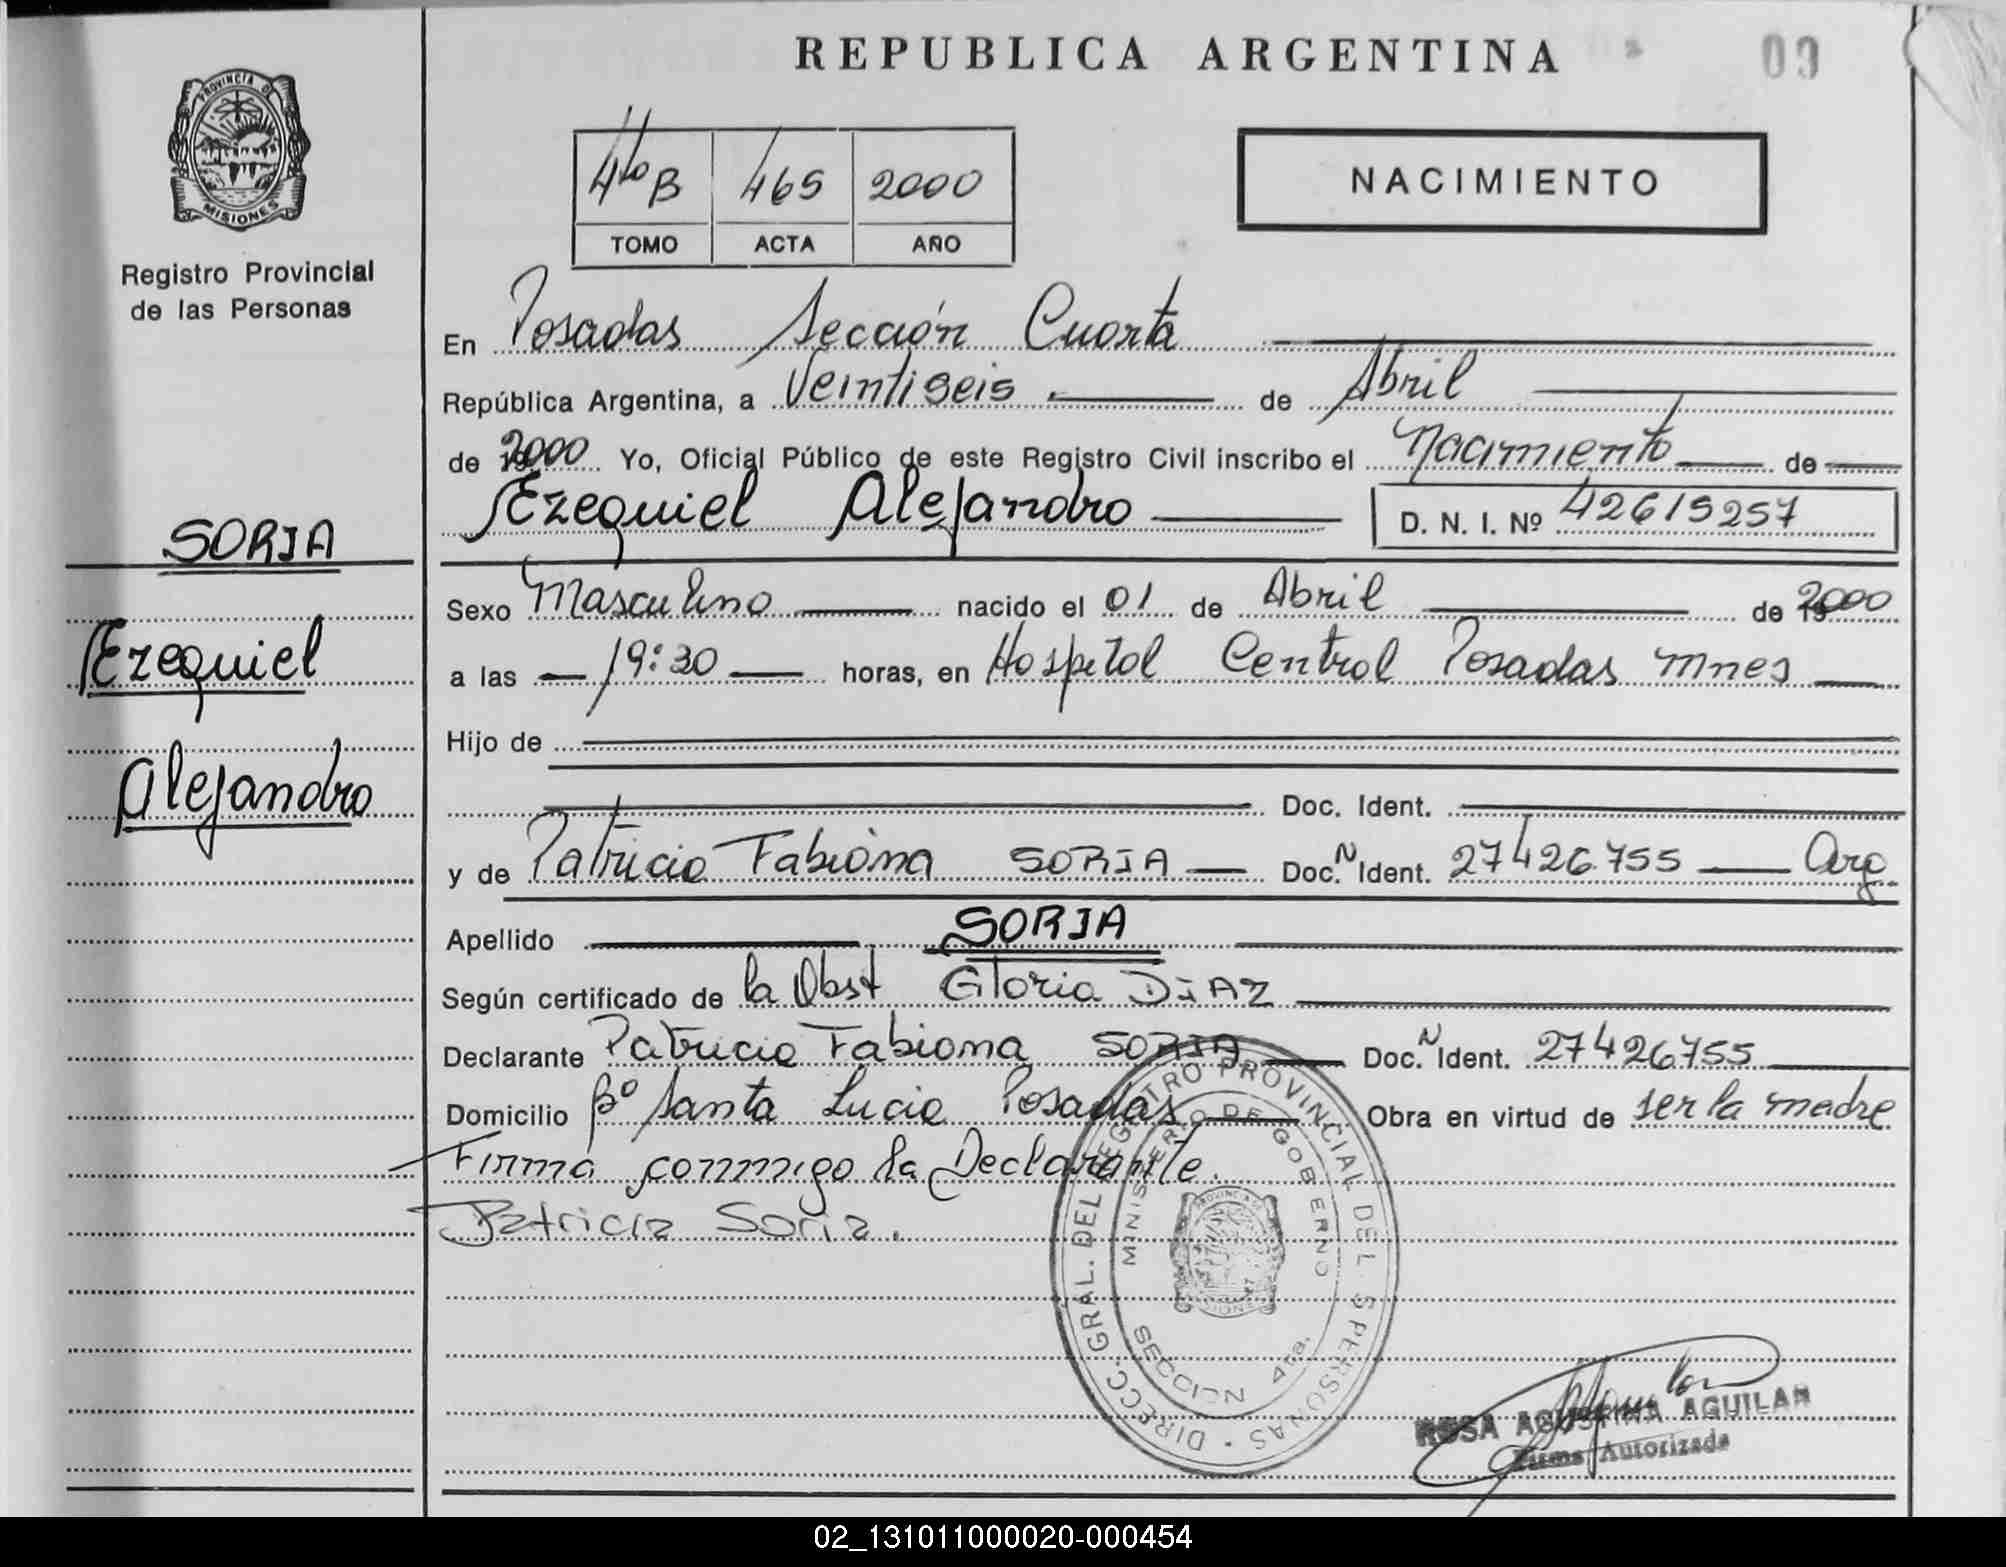 REPUBLICA ARGENTINA
09
PROVINCIA DE
MISIONES
Registro Provincial
de las Personas
4to B 465 2000
TOMO ACTA AÑO
NACIMIENTO
En Posadas Sección Cuarta
República Argentina, a Veintiseis de Abril
de 2000 Yo, Oficial Público de este Registro Civil inscribo el Nacimiento de
Ezequiel Alejandro D. N. I. Nº 42615257
SORIA
Ezequiel
Alejandro
Sexo Masculino nacido el 01 de Abril de 2000
a las 19:30 horas, en Hospital Central Posadas Mnes
Hijo de
Doc. Ident.
y de Patricia Fabiana SORIA Doc. N Ident. 27426755 Arg.
Apellido SORIA
Según certificado de la Obst Gloria DIAZ
Declarante Patricia Fabiana SORIA Doc. N Ident. 27426755
Domicilio Bº Santa Lucia Posadas Obra en virtud de ser la madre
Firma conmigo la Declarante.
Patricia Soria.
DIRECC. GRAL. DEL REGISTRO PROVINCIAL DE LAS PERSONAS
MINISTERIO DE GOBIERNO
SECCION 4ta.
ROSA AGUSTINA AGUILAR
Firma Autorizada
02_131011000020-000454